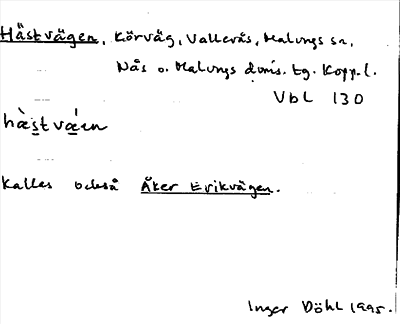 Hästvägen, Körväg, Vallerås, Malungs sn,
Nås o. Malungs doms. tg. Kopp. l.
Vbl 130
hæ̀stvǽen
Kallas också Åker Erikvägen.
Inger Döhl 1995.